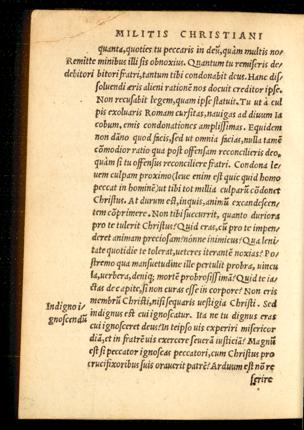 MILITIS CHRISTIANI
quanta, quoties tu peccaris in deū, quàm multis no-
Remitte minibus illi sis obnoxius. Quantum tu remiseris de-
debitori bitori fratri, tantum tibi condonabit deus. Hanc dis-
soluendi æris alieni rationē nos docuit creditor ipse.
Non recusabit legem, quam ipse statuit. Tu ut à cul
pis exoluaris Romam cursitas, nauigas ad diuum Ia
cobum, emis condonationes amplissimas. Equidem
non dāno quod facis, sed ut omnia facias, nulla tamē
cōmodior ratio qua post offensam reconcilieris deo,
quàm si tu offensus reconciliere fratri. Condona le-
uem culpam proximo (leue enim est quic quid homo
peccat in hominē) ut tibi tot millia culparū cōdonet
Christus. At durum est, inquis, animū excandescen-
tem cōprimere. Non tibi succurrit, quanto duriora
pro te tulerit Christus? Quid eras, cū pro te impen-
deret animam preciosam? nónne inimicus? Qua leni
tate quotidie te tolerat, ueteres iterantē noxias? Po
stremo qua mansuetudine ille pertulit probra, uincu
la, uerbera, deniq; mortē probrosissimā? Quid te ia-
ctas de capite, si non curas esse in corpore? Non eris
membrū Christi, nisi sequaris uestigia Christi. Sed
Indigno i-
gnoscendū
indignus est cui ignoscatur. Ita ne tu dignus eras
cui ignosceret deus? In teipso uis experiri misericor
diā, et in fratrē uis exercere seuerā iusticiā? Magnū
est si peccator ignoscas peccatori, cum Christus pro
crucifixoribus suis orauerit patrē? Arduum est nō re
ferire